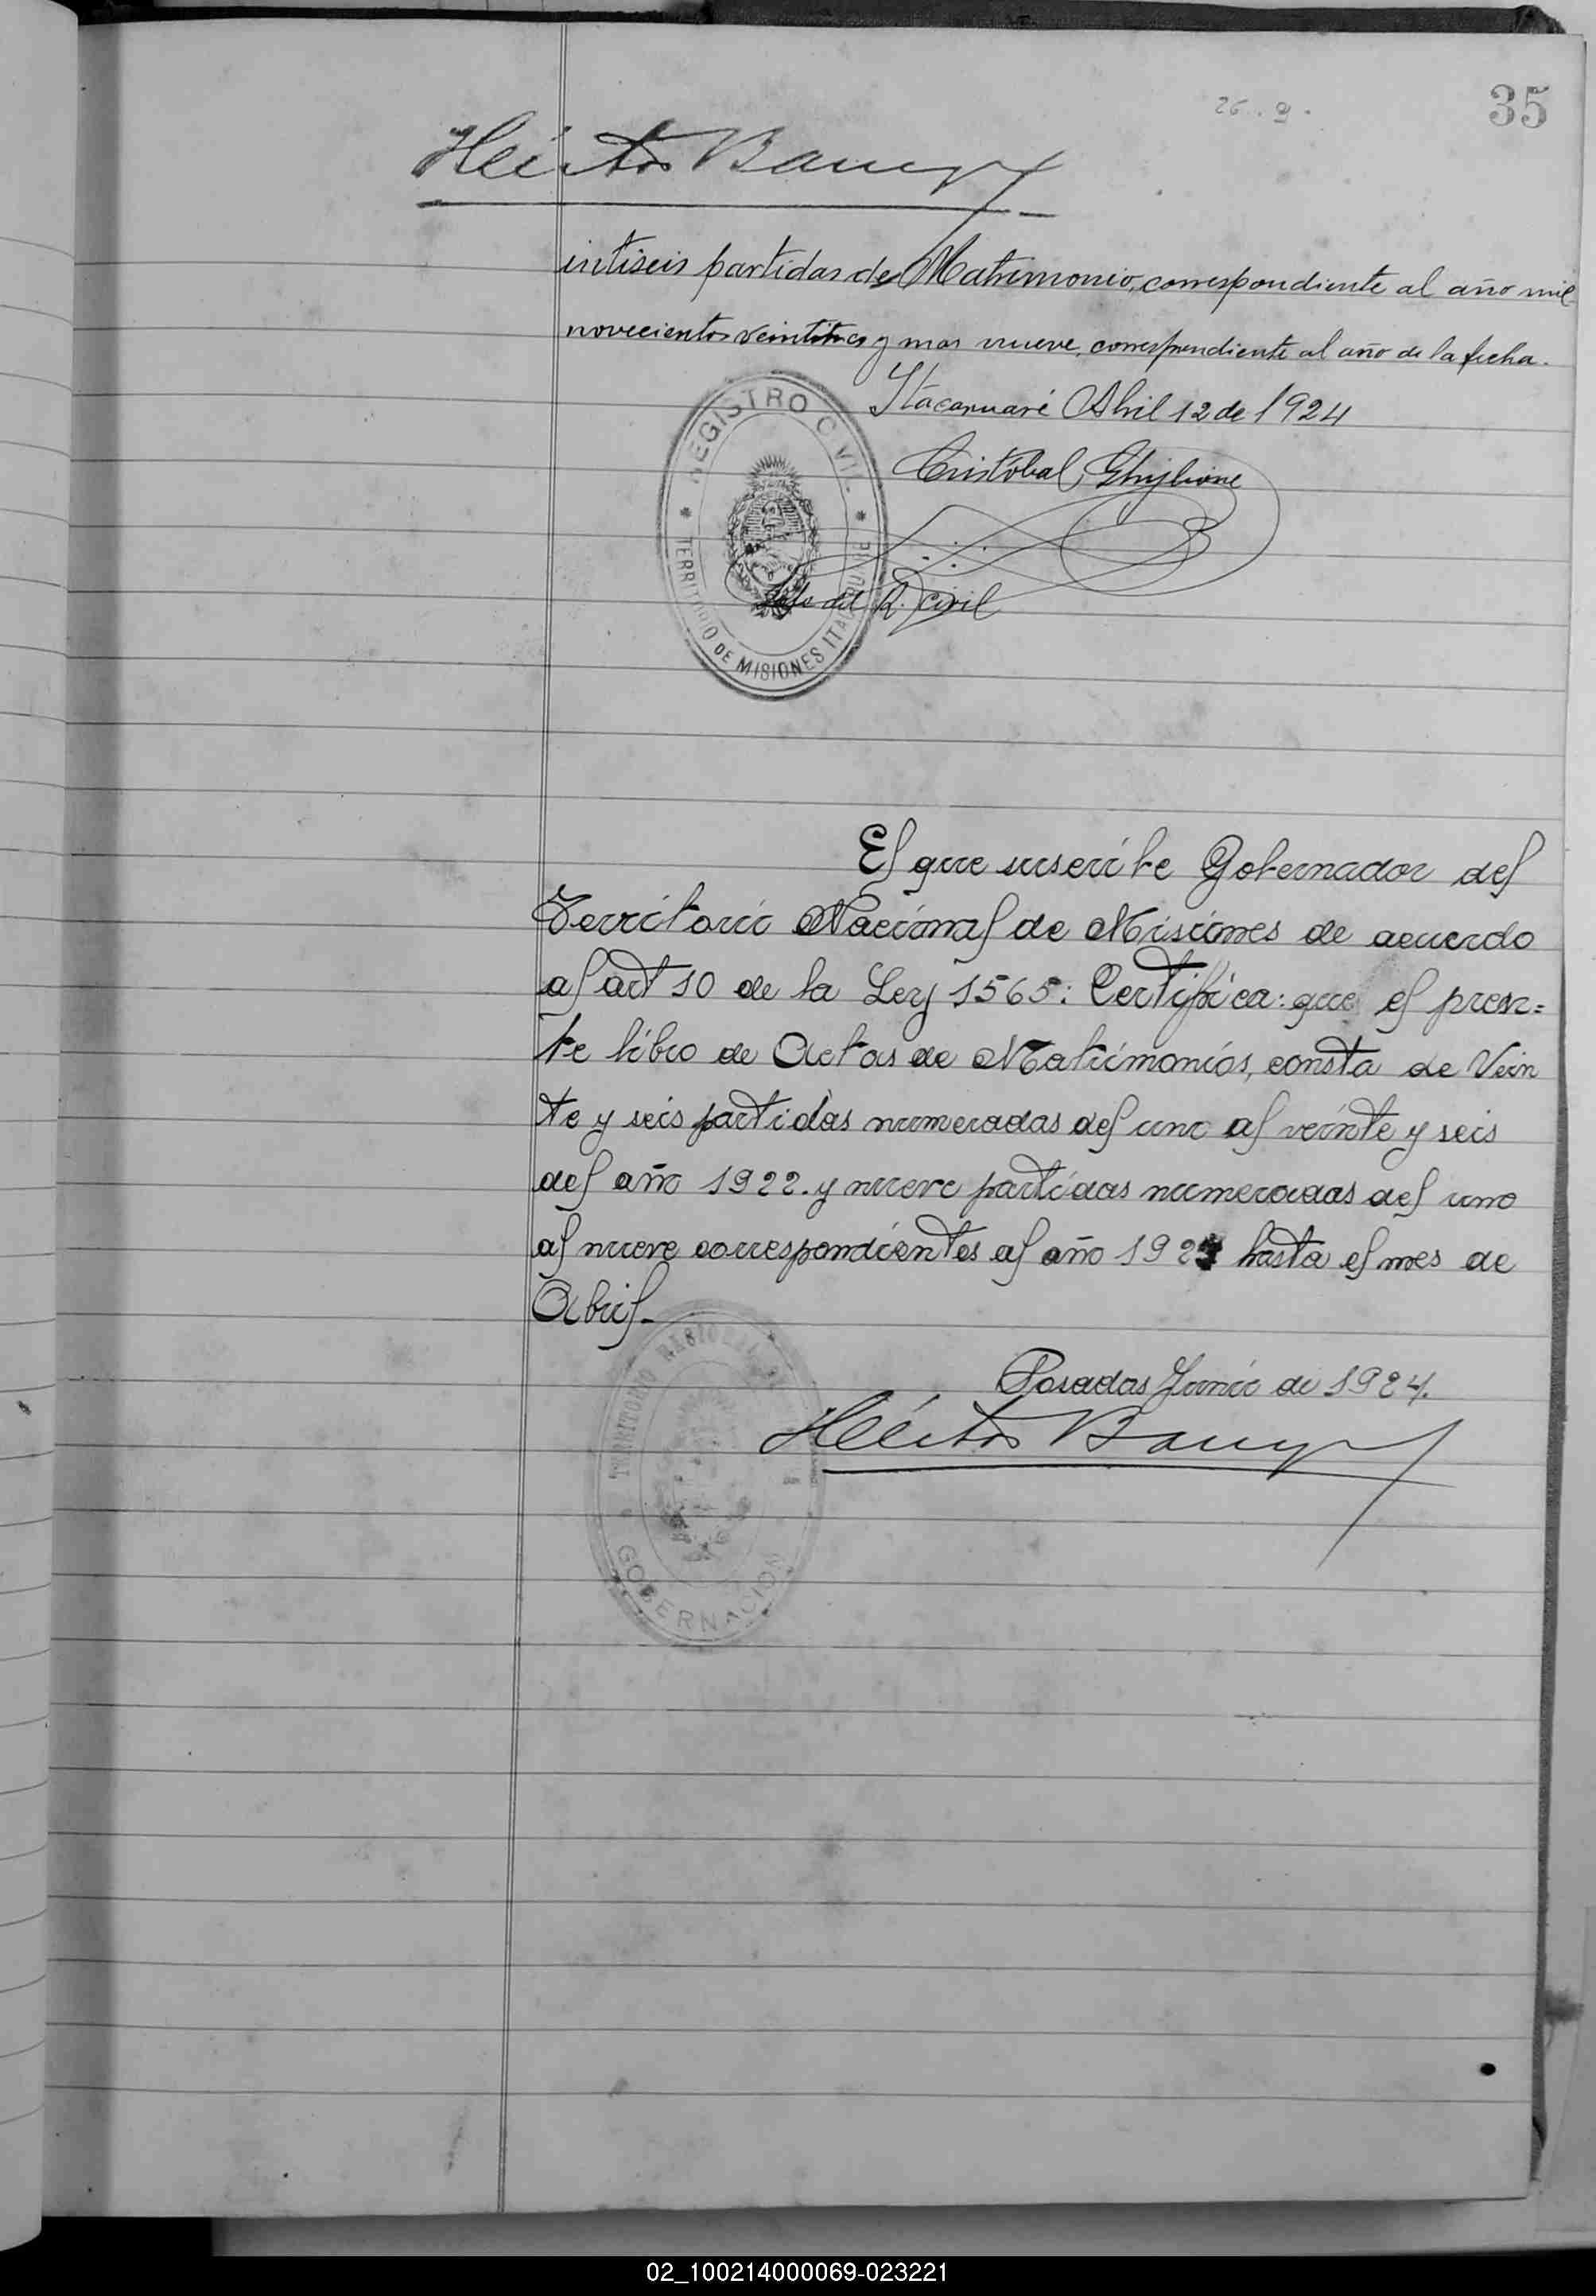 35
26..9.
Héctor Barreyro
intiseis partidas de Matrimonio, correspondiente al año mil
novecientos veintitres y mas nueve, correspondiente al año de la fecha.
Itacaruaré Abril 12 de 1924
Cristóbal Ghiglione
Jefe del R. Civil
REGISTRO CIVIL
TERRITORIO DE MISIONES ITACARUARE
El que suscribe Gobernador del
Territorio Nacional de Misiones de acuerdo
al art 10 de la Ley 1565: Certifica: que el presen=
te libro de Actas de Matrimonios, consta de Vein
te y seis partidas numeradas del uno al veinte y seis
del año 1922. y nueve partidas numeradas del uno
al nueve correspondientes al año 1924 hasta el mes de
Abril.-
Posadas Junio de 1924.
Héctor Barreyro
TERRITORIO NACIONAL
GOBERNACION
02_100214000069-023221